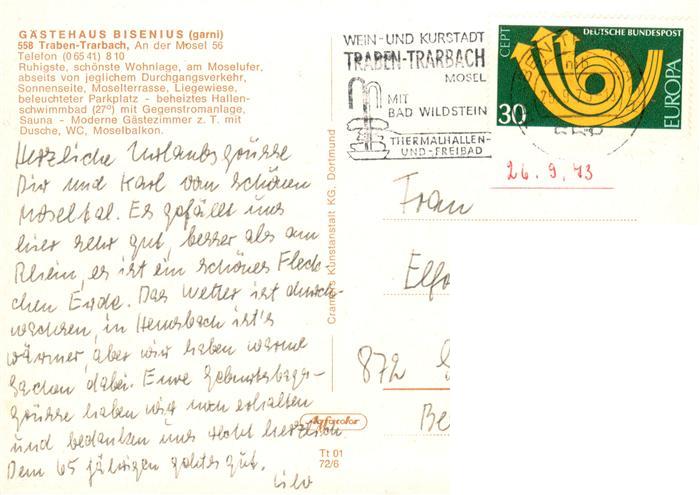 GÄSTEHAUS BISENIUS (garni)
558 Traben-Trarbach, An der Mosel 56
Telefon (0 65 41) 8 10
Ruhigste, schönste Wohnlage, am Moselufer,
abseits von jeglichem Durchgangsverkehr,
Sonnenseite, Moselterrasse, Liegewiese,
beleuchteter Parkplatz - beheiztes Hallen-
schwimmbad (27°) mit Gegenstromanlage,
Sauna - Moderne Gästezimmer z. T. mit
Dusche, WC, Moselbalkon.
Herzliche Urlaubsgrüsse
Dir und Karl vom schönen
Moseltal. Es gefällt uns
hier sehr gut, besser als am
Rhein, es ist ein schönes Fleck-
chen Erde. Das Wetter ist durch-
wachsen, in Hemsbach ist's
wärmer, aber wir haben warme
Sachen dabei. Eure Geburtstags-
grüsse haben wir noch erhalten
und bedanken uns recht herzlich.
Dem 65 jährigen geht es gut.
Cramers Kunstanstalt KG, Dortmund
Agfacolor
Tt 01
72/6
WEIN- UND KURSTADT
TRABEN-TRARBACH
MOSEL
MIT
BAD WILDSTEIN
THERMALHALLEN-
UND-FREIBAD
CEPT
DEUTSCHE BUNDESPOST
EUROPA
30
26. 9. 73
Frau
872